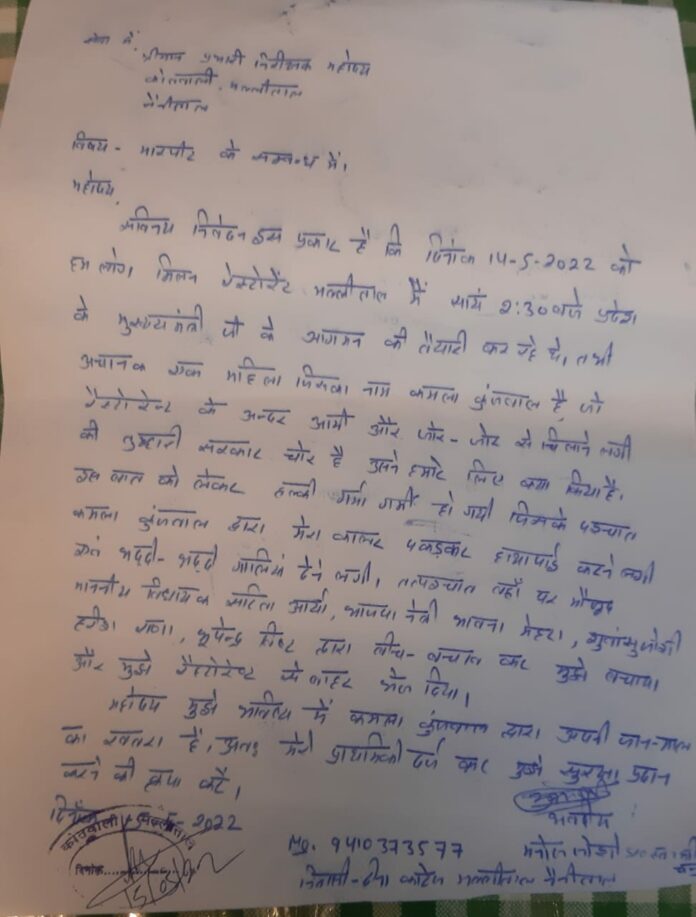 सेवा में,
श्रीमान प्रभारी निरीक्षक महोदय
कोतवाली, मल्लीताल
नैनीताल
विषय - मारपीट के सम्बन्ध में।
महोदय,
सविनय निवेदन इस प्रकार है कि दिनांक 14-5-2022 को
हम लोग मिलन रेस्टोरेंट मल्लीताल में सायं 2:30 बजे प्रदेश
के मुख्यमंत्री जी के आगमन की तैयारी कर रहे थे, तभी
अचानक एक महिला जिसका नाम कमला कुंजवाल है जो
रैस्टोरेन्ट के अन्दर आयी और जोर-जोर से चिलाने लगी
की तुम्हारी सरकार चोर है इसने हमारे लिए क्या किया है,
इस बात को लेकर हल्की गर्मा गर्मी हो गयी जिसके पश्चात
कमला कुंजवाल द्वारा मेरा कालर पकड़कर हाथापाई करने लगी
एवं भद्दी-भद्दी गालियां देने लगी, तत्पश्चात वहाँ पर मौजूद
माननीय विधायक सरिता आर्या, भाजपा नेत्री भावना मेहरा,
हरीश राणा, भूपेन्द्र बिष्ट द्वारा बीच-बचाव कर मुझे बचाया
और मुझे रैस्टोरेन्ट से बाहर भेज दिया।
महोदय मुझे भविष्य में कमला कुंजवाल द्वारा अपनी जान-माल
का खतरा है, अतः मेरी प्राथमिकी दर्ज कर मुझे सुरक्षा प्रदान
करने की कृपा करें।
दिनांक 2022
कोतवाली मल्लीताल
दिनांक
15/05/22
भवदीय
Mo. 9410373577 मनोज जोशी
निवासी - कॉटेज मल्लीताल नैनीताल